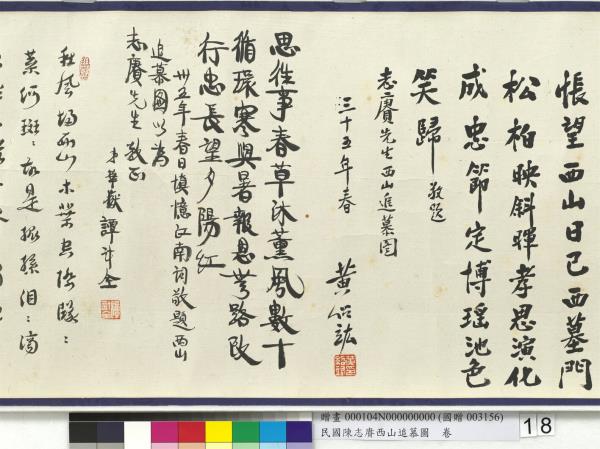 悵望西山日已西墓門
松柏映斜暉孝思演化
成忠節定博瑤池色
笑歸 敬題
志賡先生西山追慕圖
三十五年春
黃紹竑
思往事春草沐薰風數十
循環寒與暑報恩路改
行忠長望夕陽紅
卅五年春日填憶江南詞敬題西山
追慕圖以為
志賡先生 教正
譚計全
秋風掃西山木葉
是猿淚滴
贈畫 000104N000000000 (國贈 003156)
民國陳志賡西山追慕圖 卷
18